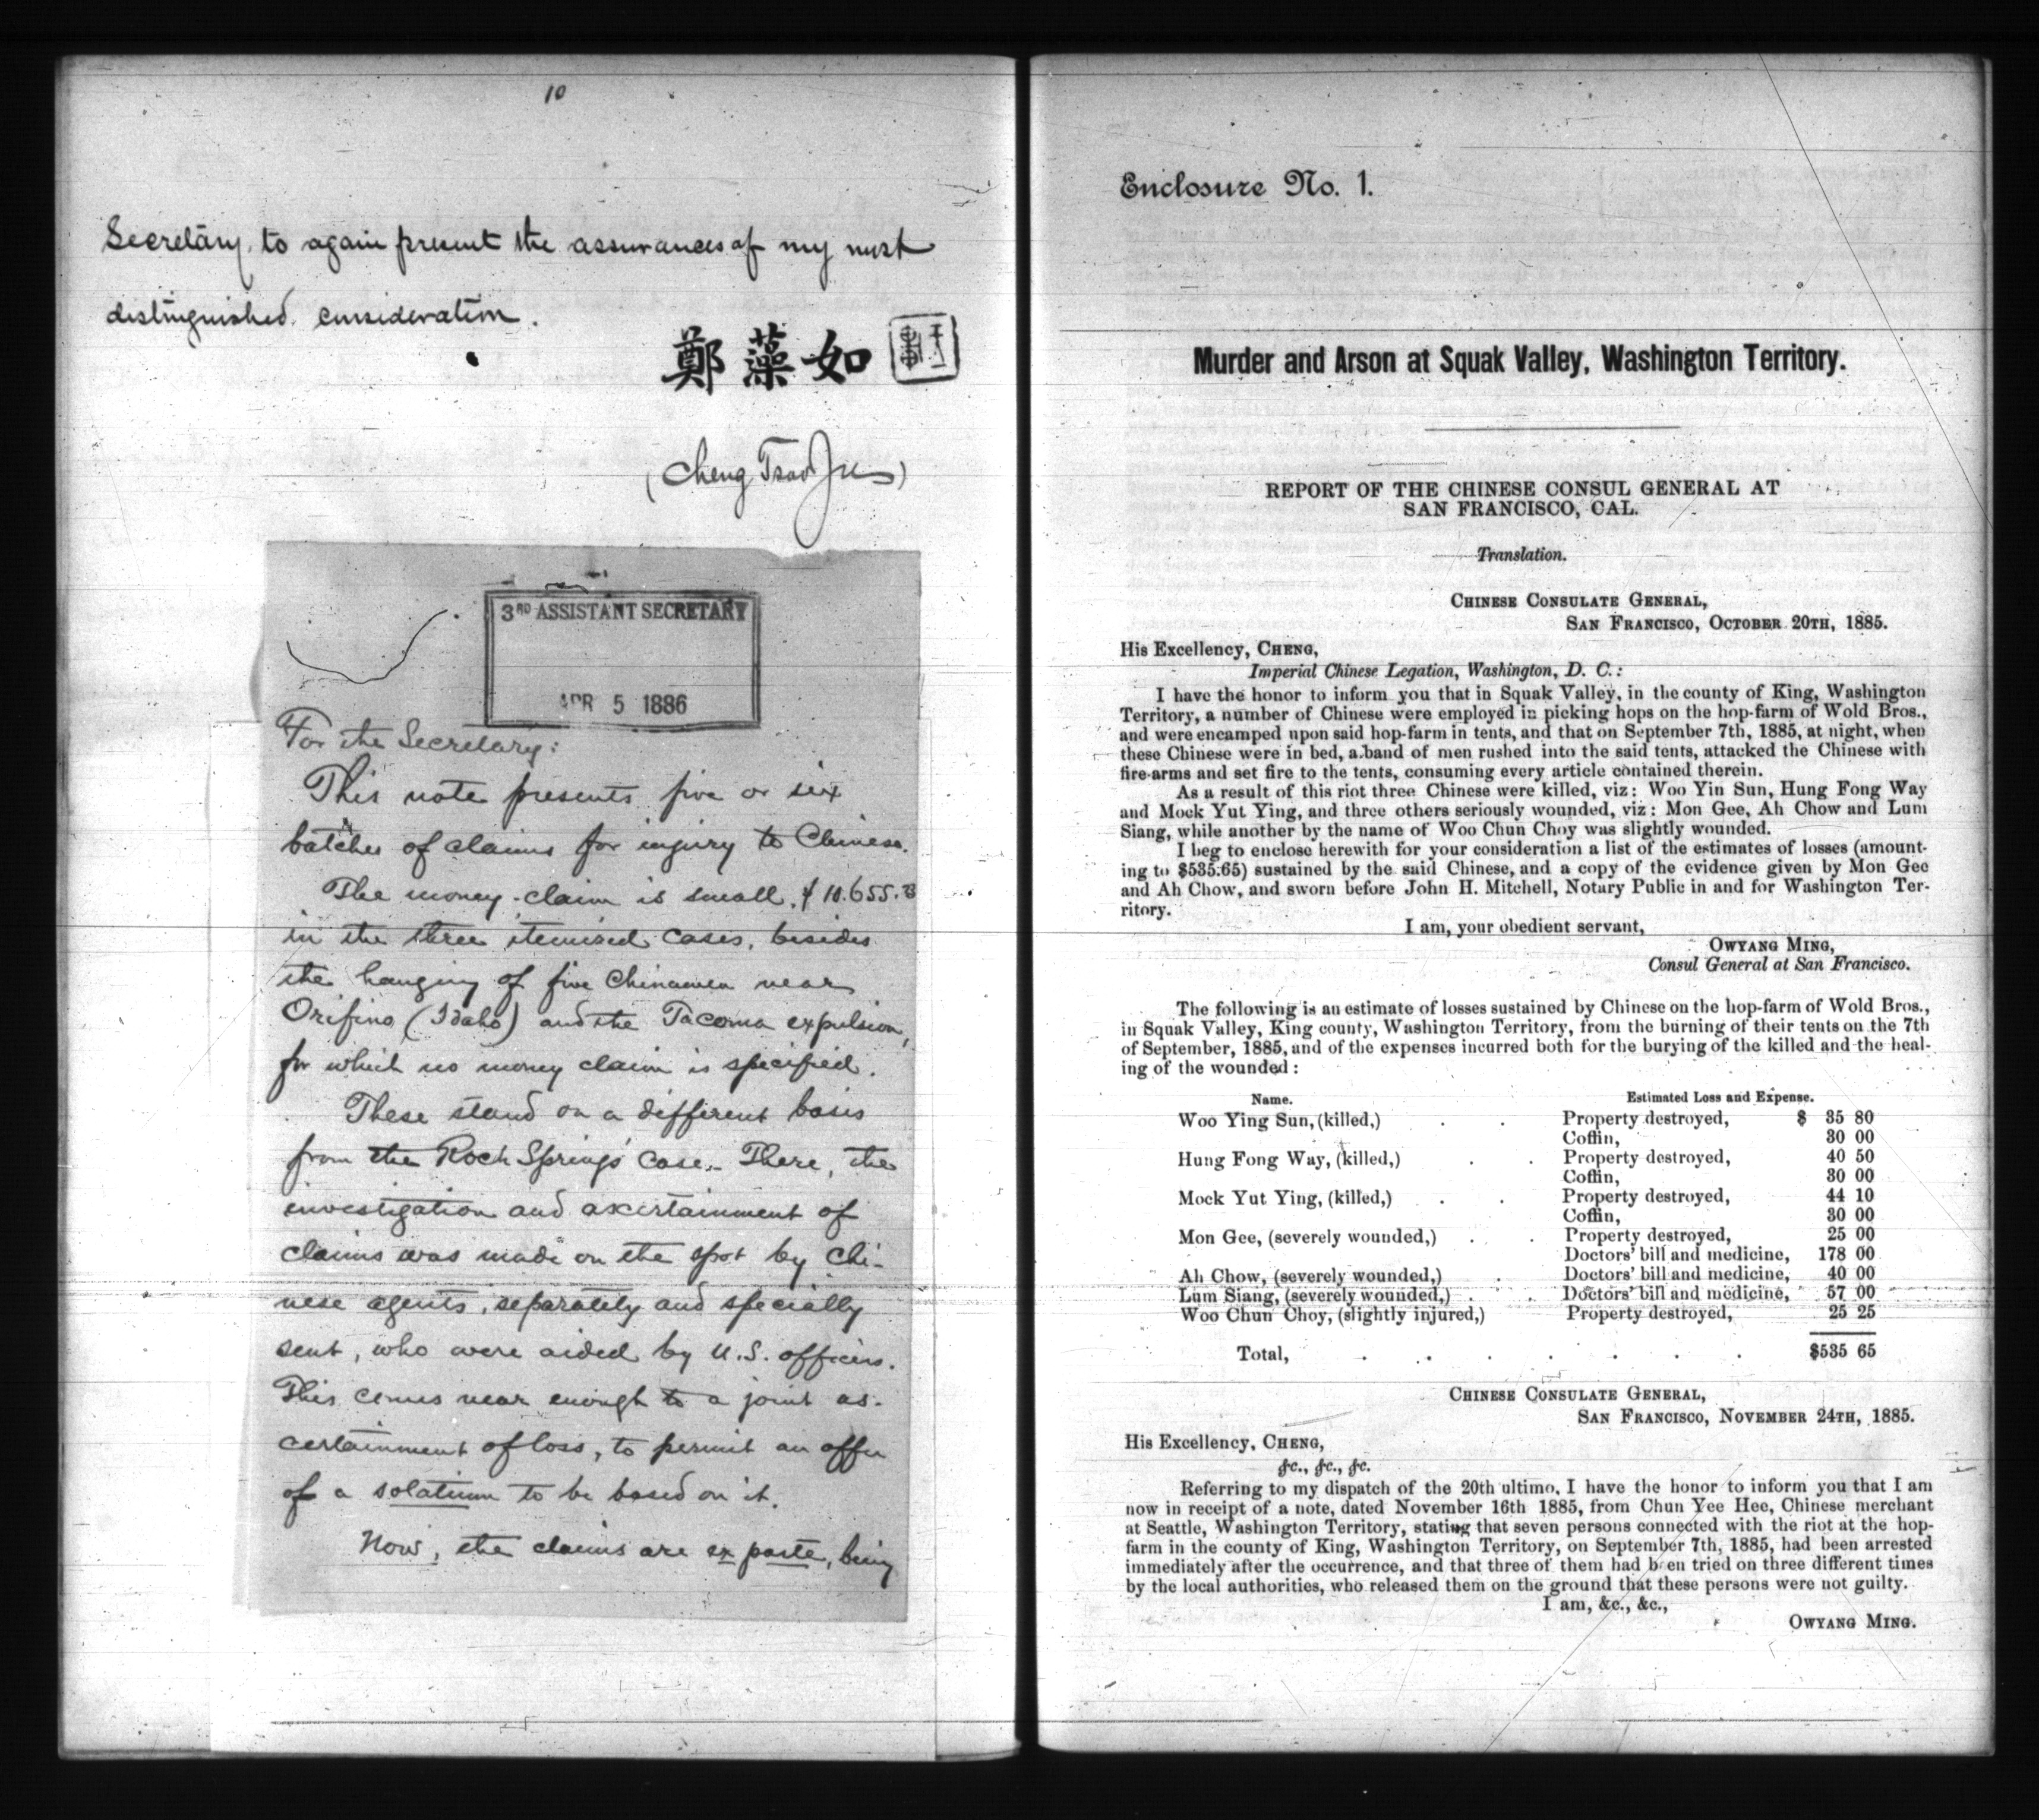 10
Secretary, to again present the assurances of my most
distinguished consideration.
鄭藻如
(Cheng Tsao Ju)
3RD ASSISTANT SECRETARY
APR 5 1886
For the Secretary:
This note presents five or six
batches of claims for injury to Chinese.
The money-claim is small, $10.655.
in the three itemized cases, besides
the hanging of five Chinamen near
Orifino (Idaho) and the Tacoma expulsion,
for which no money claim is specified.
These stand on a different basis
from the Rock Springs' case. There, the
investigation and ascertainment of
claims was made on the spot by Chi-
nese agents, separately and specially
sent, who were aided by U.S. officers.
This comes near enough to a joint as-
certainment of loss, to permit an offer
of a solatium to be based on it.
Now, the claims are ex parte, being
Enclosure No. 1.
Murder and Arson at Squak Valley, Washington Territory.
REPORT OF THE CHINESE CONSUL GENERAL AT
SAN FRANCISCO, CAL.
Translation.
CHINESE CONSULATE GENERAL,
SAN FRANCISCO, OCTOBER 20TH, 1885.
His Excellency, CHENG,
Imperial Chinese Legation, Washington, D. C.:
I have the honor to inform you that in Squak Valley, in the county of King, Washington
Territory, a number of Chinese were employed in picking hops on the hop-farm of Wold Bros.,
and were encamped upon said hop-farm in tents, and that on September 7th, 1885, at night, when
these Chinese were in bed, a band of men rushed into the said tents, attacked the Chinese with
fire-arms and set fire to the tents, consuming every article contained therein.
As a result of this riot three Chinese were killed, viz: Woo Yin Sun, Hung Fong Way
and Mock Yut Ying, and three others seriously wounded, viz: Mon Gee, Ah Chow and Lum
Siang, while another by the name of Woo Chun Choy was slightly wounded.
I beg to enclose herewith for your consideration a list of the estimates of losses (amount-
ing to $535.65) sustained by the said Chinese, and a copy of the evidence given by Mon Gee
and Ah Chow, and sworn before John H. Mitchell, Notary Public in and for Washington Ter-
ritory.
I am, your obedient servant,
OWYANG MING,
Consul General at San Francisco.
The following is an estimate of losses sustained by Chinese on the hop-farm of Wold Bros.,
in Squak Valley, King county, Washington Territory, from the burning of their tents on the 7th
of September, 1885, and of the expenses incurred both for the burying of the killed and the heal-
ing of the wounded:
Name. Estimated Loss and Expense.
Woo Ying Sun, (killed,) . . Property destroyed, $ 35 80
Coffin, 30 00
Hung Fong Way, (killed,) . . Property destroyed, 40 50
Coffin, 30 00
Mock Yut Ying, (killed,) . . Property destroyed, 44 10
Coffin, 30 00
Mon Gee, (severely wounded,) . . Property destroyed, 25 00
Doctors' bill and medicine, 178 00
Ah Chow, (severely wounded,) . Doctors' bill and medicine, 40 00
Lum Siang, (severely wounded,) . . Doctors' bill and medicine, 57 00
Woo Chun Choy, (slightly injured,) Property destroyed, 25 25
Total, . . . . . . . $535 65
CHINESE CONSULATE GENERAL,
SAN FRANCISCO, NOVEMBER 24TH, 1885.
His Excellency, CHENG,
&c., &c., &c.
Referring to my dispatch of the 20th ultimo, I have the honor to inform you that I am
now in receipt of a note, dated November 16th 1885, from Chun Yee Hee, Chinese merchant
at Seattle, Washington Territory, stating that seven persons connected with the riot at the hop-
farm in the county of King, Washington Territory, on September 7th, 1885, had been arrested
immediately after the occurrence, and that three of them had been tried on three different times
by the local authorities, who released them on the ground that these persons were not guilty.
I am, &c., &c.,
OWYANG MING.